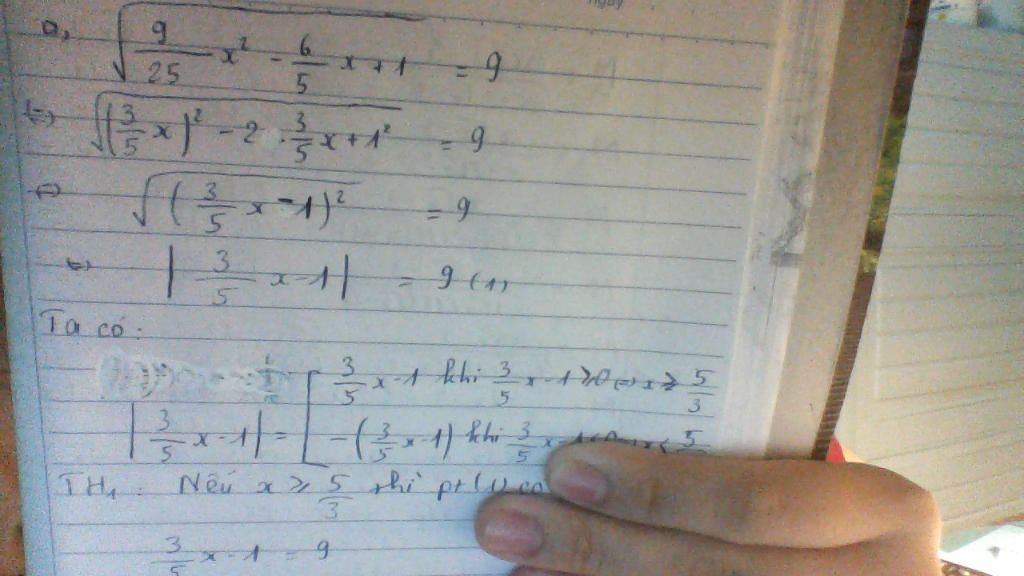 a, √(9/25 x² - 6/5 x + 1) = 9
⇔ √((3/5 x)² - 2 . 3/5 x + 1²) = 9
⇔ √((3/5 x - 1)²) = 9
⇔ |3/5 x - 1| = 9 (1)
Ta có:
3/5 x - 1 khi 3/5 x - 1 ≥ 0 ⇔ x ≥ 5/3
|3/5 x - 1| = [ -(3/5 x - 1) khi 3/5 x
TH1: Nếu x ≥ 5/3 thì pt (1) có
3/5 x - 1 = 9